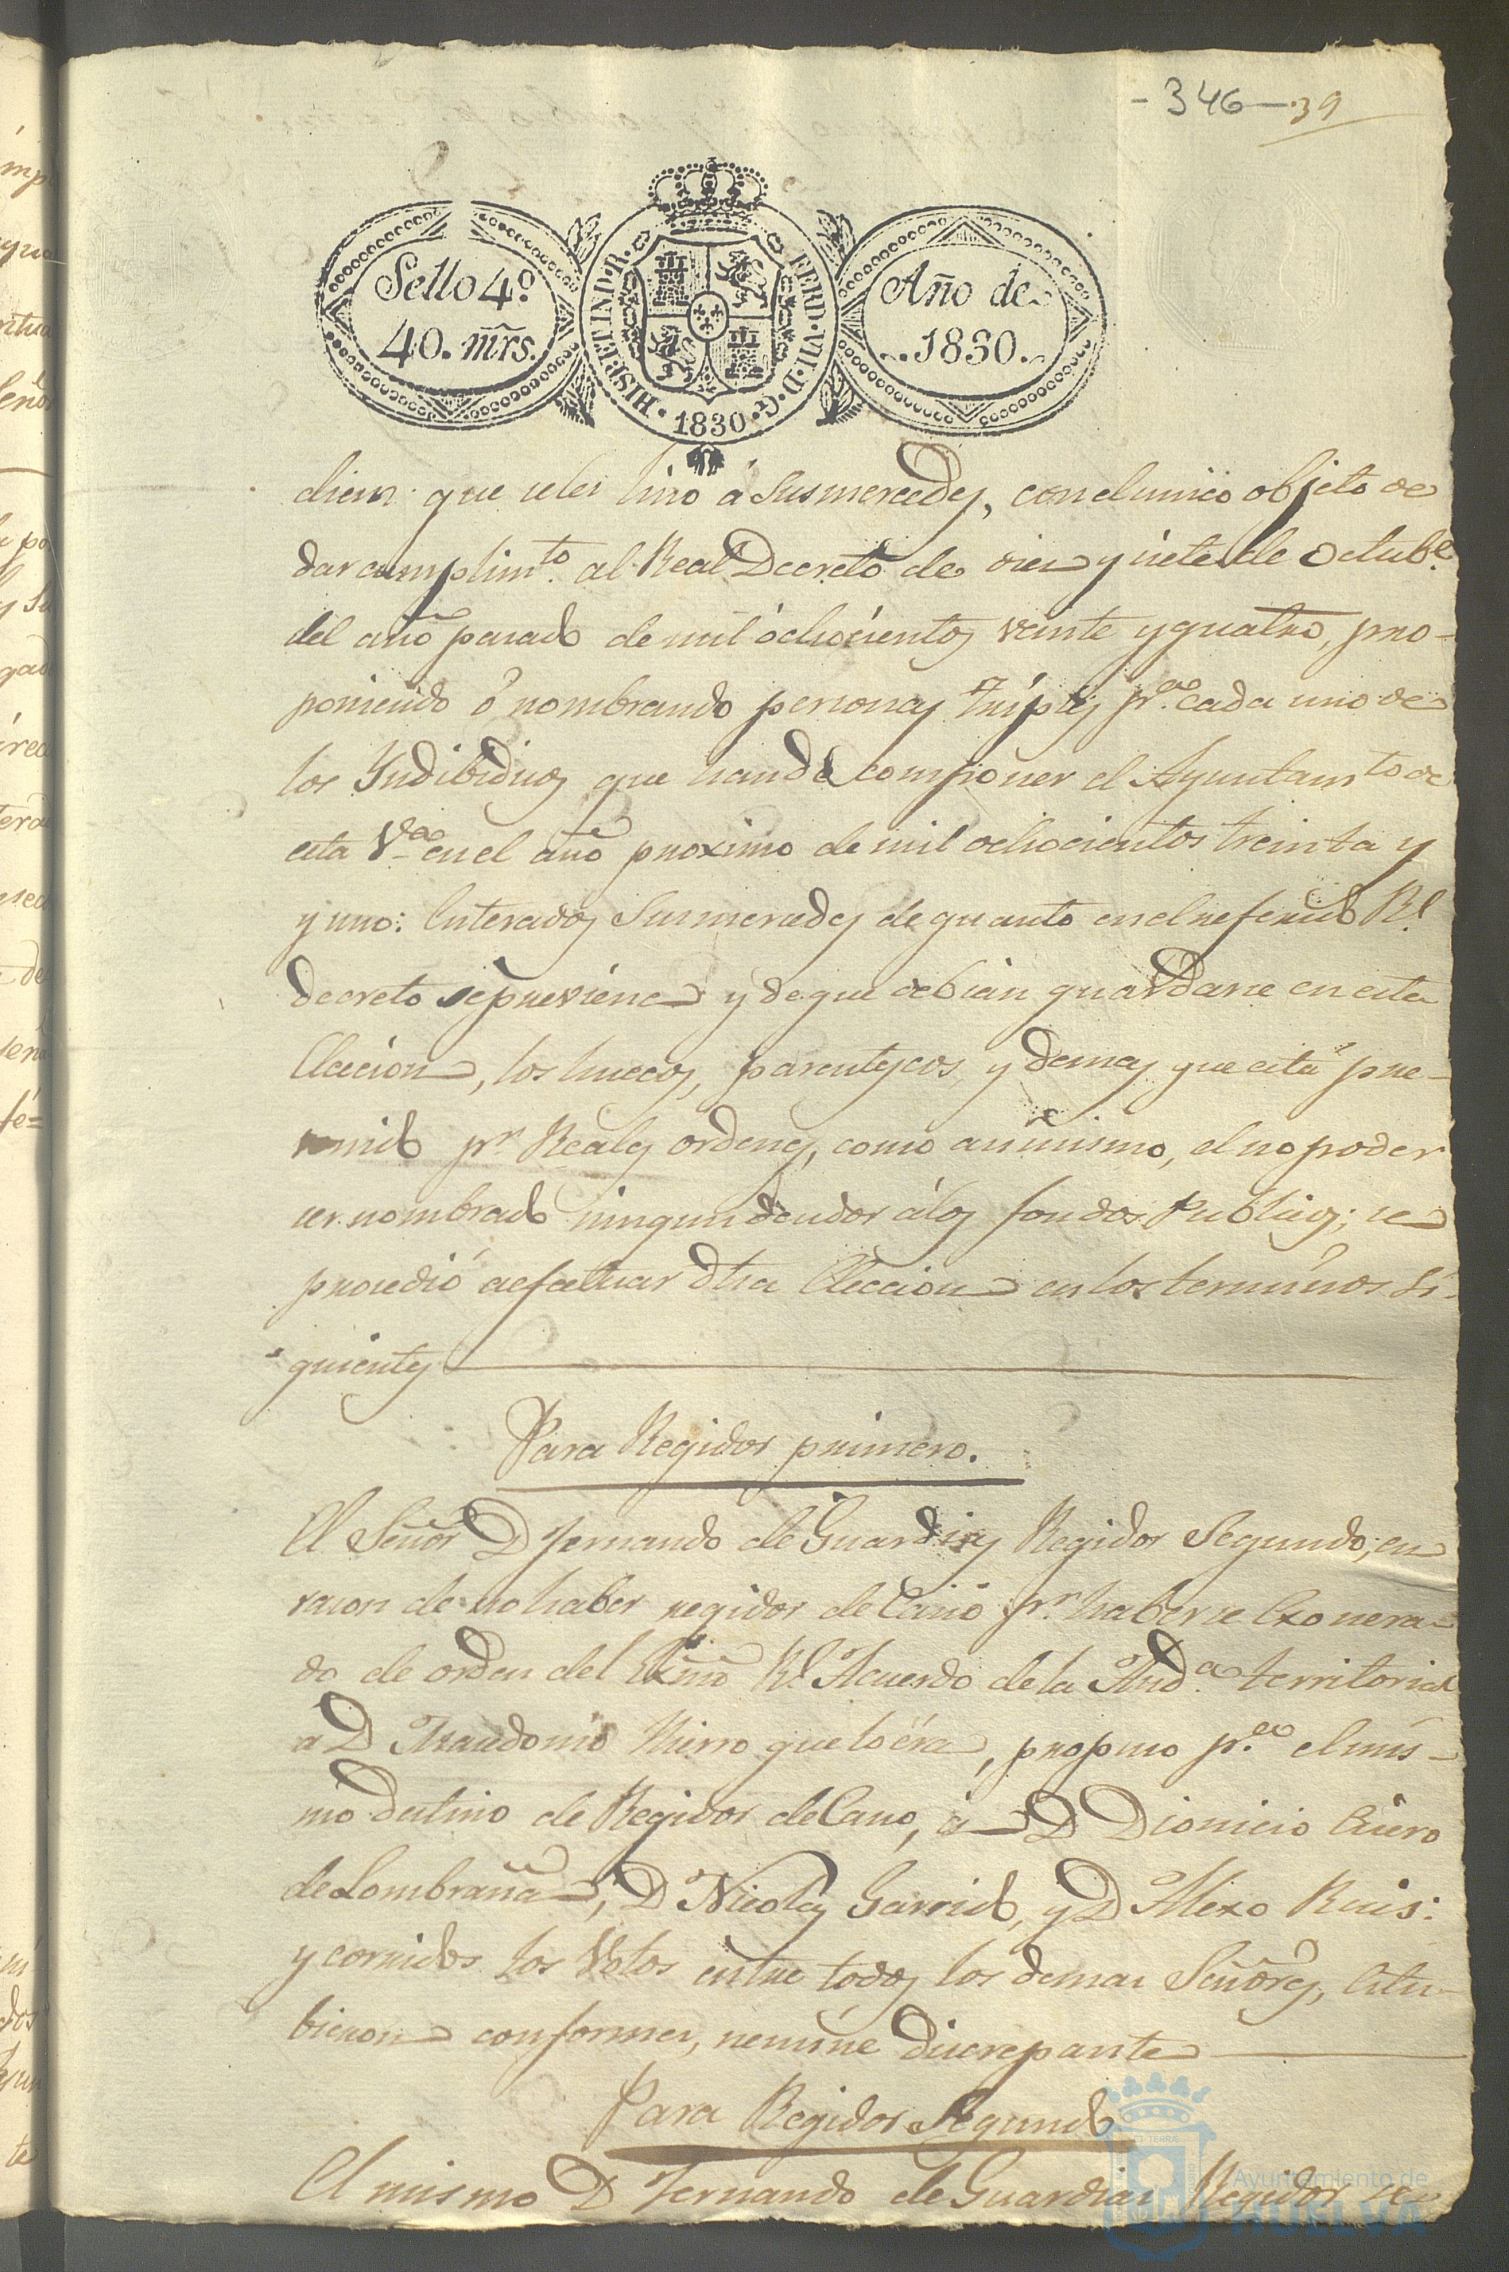 - 346 - 39
Sello 4º
40. mrs.
HISP. ET IND. R. FERD. VII. D. G.
1830
Año de
1830.
diem que se les hiso á Susmercedes, con el unico objeto de
dar cumplimto. al Real Decreto de dies y siete de Octube.
del año pasado de mil ochocientos veinte y quatro, pro-
poniendo ó nombrando personas triples pa. cada uno de
los Yndibiduos que han de componer el Ayuntamto de
esta Va. en el año proximo de mil ochocientos treinta y
y uno: Enterados Susmercedes de quanto en el referido Rl.
decreto se previene y de que debian guardarse en esta
Elecion, los huecos, parentescos, y demas que está pre-
venido pr. Reales ordenes, como asimismo, el no poder
ser nombrado ningun deudor á los fondos Publicos; se
prosedió aefectuar dha Eleccion en los terminos si-
guientes
Para Regidor primero.
El Señor D Fernando de Guardias Regidor Segundo, en
rason de no haber regidor de Cano pr. haberse Exonera-
do de orden del Exmo Rl. Acuerdo de la Auda. territorial
a D Hierro que lo éra, propuso pa. el mis-
mo destino de Regidor de Cano, á D Dionicio Cuero
de Lombraña, D Nicolas Garrido, y D Alexo Ruis:
y corridos los Votos entre todos los demas Señores, Estu-
bieron conformes, nemine discrepante
Para Regidor Segundo
El mismo D Fernando de Guardias Regidor se
Ayuntamiento de
HUELVA